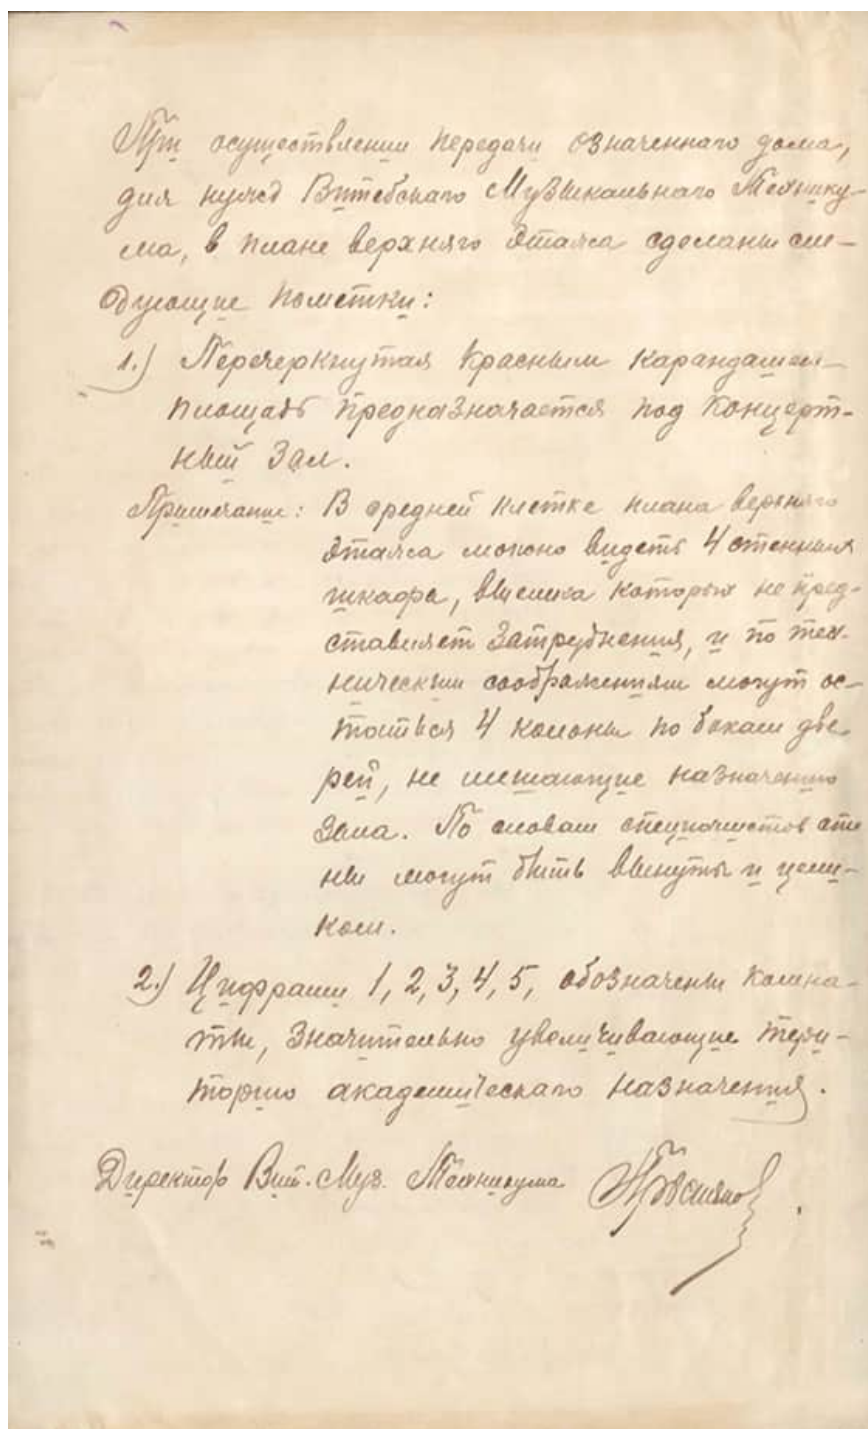 При осуществлении передачи означеннаго дома,
для нужд Витебскаго Музыкальнаго Технику-
ма, в плане верхняго этажа сделаны сле-
дующие пометки:
1.) Перечеркнутая красным карандашем
площадь предназначается под концерт-
ный зал.
Примечание: В средней клетке плана верхняго
этажа можно видеть 4 стенных
шкафа, выемка которых не пред-
ставляет затруднения, и по тех-
ническим соображениям могут ос-
таться 4 колоны по бокам две
рей, не мешающие назначению
зала. По словам специалистов сте
ны могут быть вынуты и цели-
ком.
2.) Цифрами 1, 2, 3, 4, 5, обозначены комна-
ты, значительно увеличивающие тери-
торию академическаго назначения.
Директор Вит. Муз. Техникума